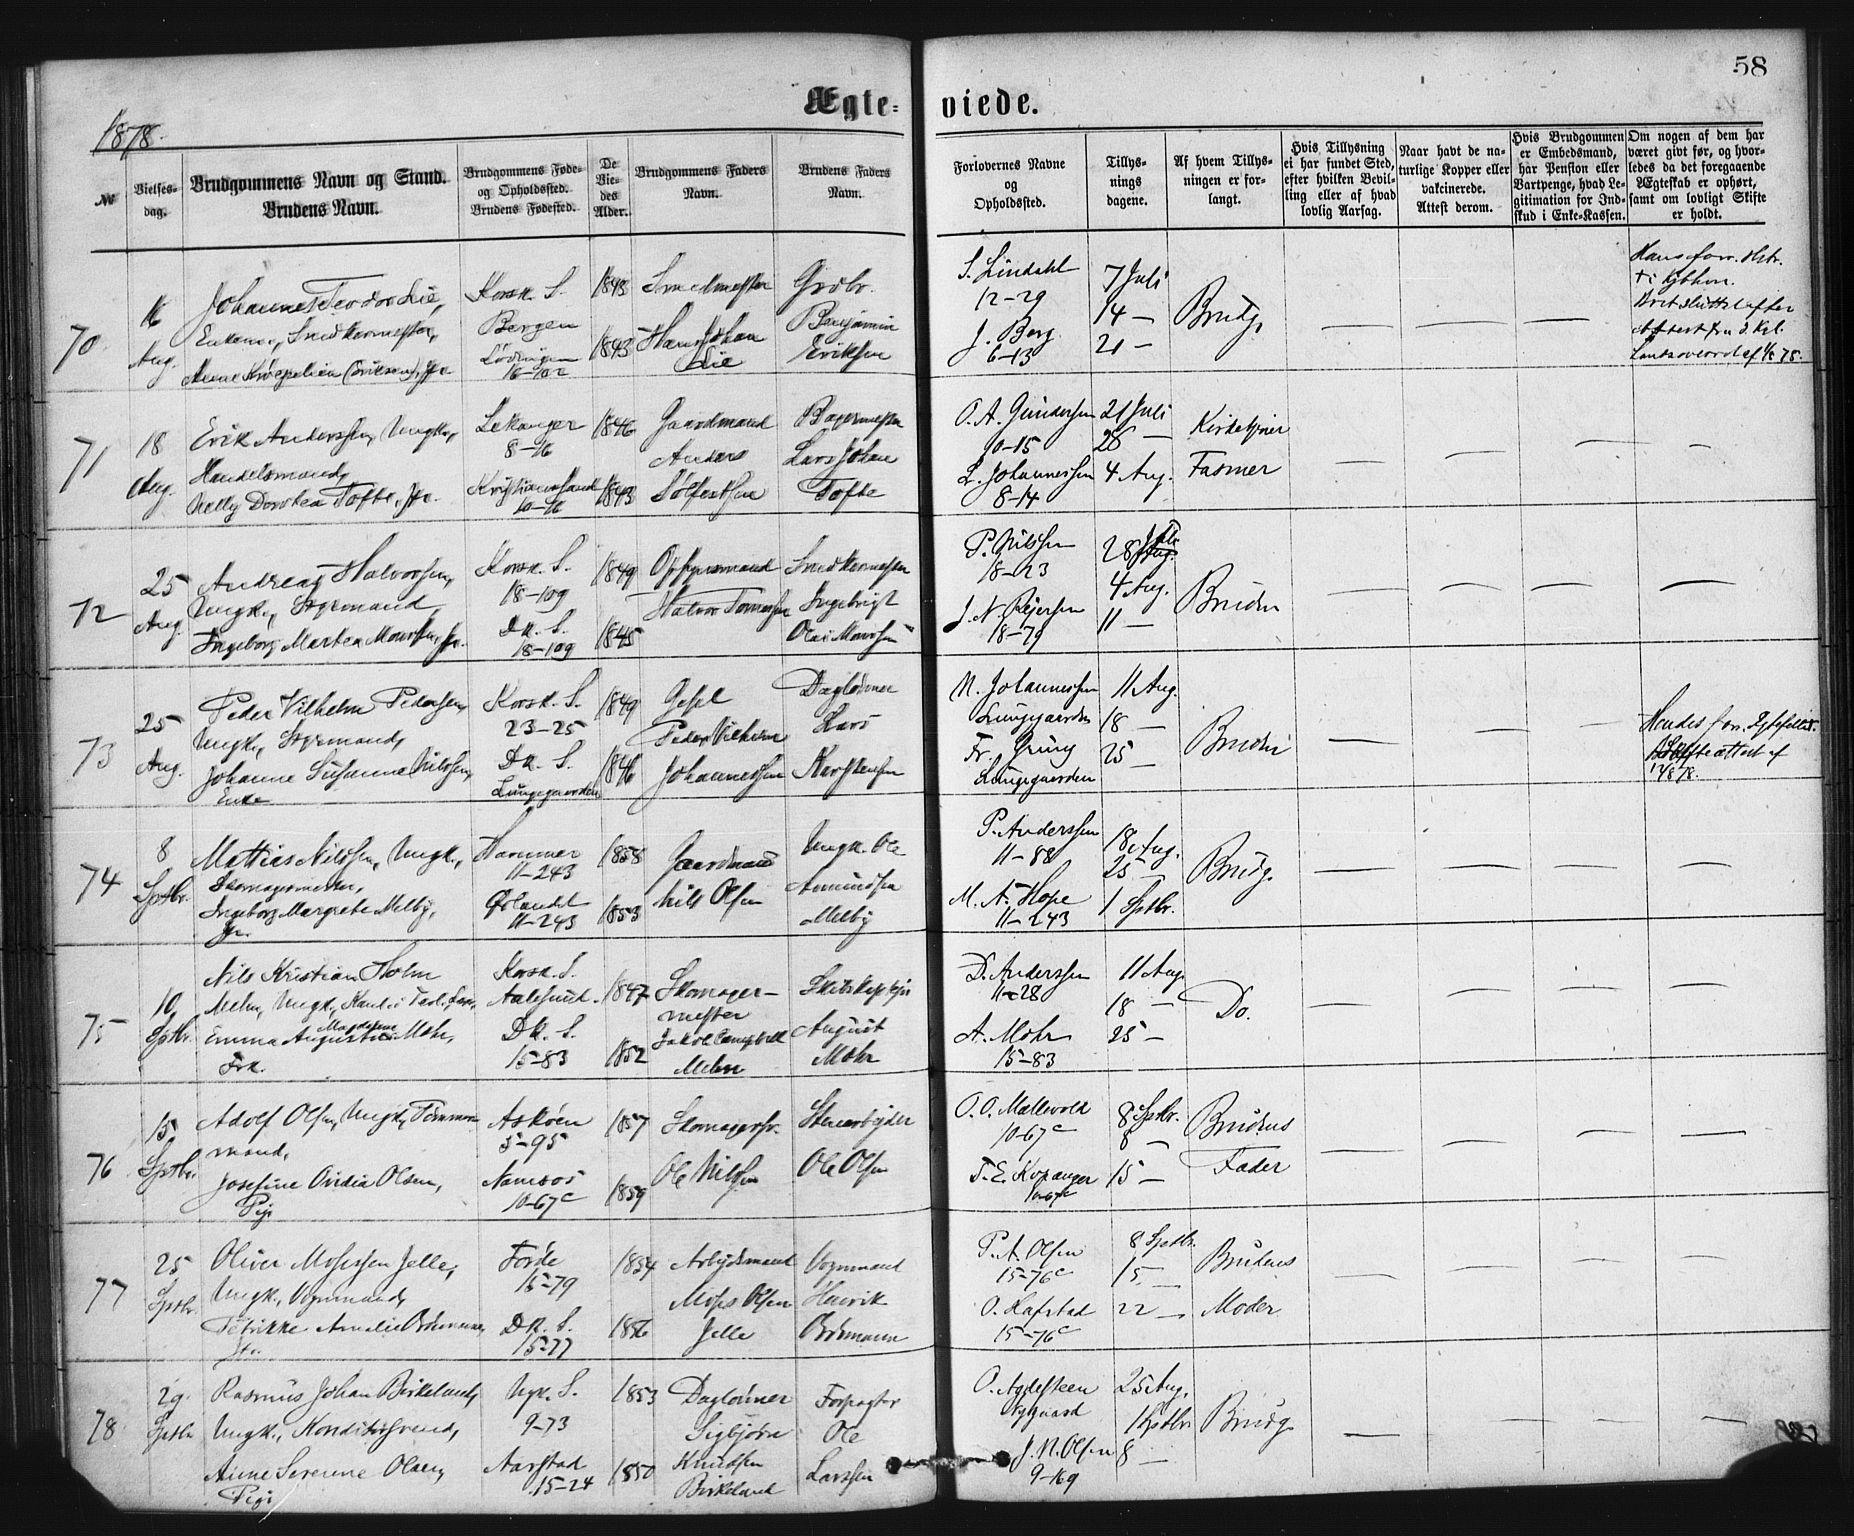 58
Ægte-
viede.
1878.
№
Vielses-
dag.
Brudgommens Navn og Stand.
Brudens Navn.
Brudgommens Føde-
og Opholdssted.
Brudens Fødested.
De
Vie-
des
Alder.
Brudgommens Faders
Navn.
Brudens Faders
Navn.
Forlovernes Navne
og
Opholdssted.
Tillys-
nings
dagene.
Af hvem Tillys-
ningen er for-
langt.
Hvis Tillysning
ei har fundet Sted,
efter hvilken Bevil-
ling eller af hvad
lovlig Aarsag.
Naar havt de na-
turlige Kopper eller
vakcinerede.
Attest derom.
Hvis Brudgommen
er Embedsmand,
har Pension eller
Vartpenge, hvad Le-
gitimation for Ind-
skud i Enke-Kassen.
Om nogen af dem har
været givt før, og hvor-
ledes da det foregaaende
Ægteskab er ophørt,
samt om lovligt Skifte
er holdt.
70
16
Aug.
Johannes Teodor Lie,
Enkem., Snedkermester,
Korsk. S.
Bergen
Lødingen
16-102
1843
1843
Hans Johan
Lie
Benjamin
Eriksen
S. Lindahl
12-29
J. Berg
6-13
7 Juli
14 —
21 —
Brudg.
—
—
—
71
18
Aug.
Erik Anderssen, Ungk.,
Handelsmand,
Nelly Dorothea Tofte, Jfr.
Lekanger
8-16
Kristianssand
10-16
1846
1843
Gaardmand
Anders
Bagermester
Lars Johan
Tofte
O. A. Gundersen
10-15
L. Johannessen
8-14
21 Juli
28 —
4 Aug.
Kirketjener
Fasmer
—
—
—
—
72
25
Aug.
Andreas Halvorsen,
Ungk., Styrmand,
Ingeborg Martea Monssen, Jfr.
Korsk. S.
18-109
Dk. S.
18-109
1849
1845
Opsynsmand
Halvor Tomessen
Snedkermester
Ingebrigt
Olai Monssen
P. Nilssen
18-23
J. N. Rejersen
18-79
28 Juli
4 Aug.
11 —
Bruden
—
—
—
—
73
25
Aug.
Peder Vilhelm Pedersen,
Ungk., Styrmand,
Johanne Susanne Nilssen,
Enke
Korsk. S.
23-25
Dk. S.
Lungegaarden
1849
1846
Peder Vilhelm
Johannessen
Dagløner
Lars
Karstensen
N. Johannessen
Lungegaarden
Fr. Gruny
Lungegaarden
11 Aug.
18 —
25 —
Bruden
—
—
—
74
8
Sptbr.
Mattias Nilssen, Ungk.,
Skomagermester,
Ingeborg Margrete Melby,
Jfr.
Hammer
11-243
Ørlandet
11-243
1858
1853
Gaardmand
Nils Olsen
Ungk. Ole
Amundsen
Melby
P. Anderssen
11-88
M. A. Hope
11-243
18 Aug.
25 —
1 Sptbr.
Brudg.
—
—
—
—
75
10
Sptbr.
Nils Kristian Holm
Emma Augusta Magdalene Mohr,
Frk.
Korsk. S.
Aalesund
Dk. S.
15-83
1847
1852
Skomager-
mester
Jakob Campbell
August
Mohr
D. Anderssen
11-28
A. Mohr
15-83
11 Aug.
18 —
25 —
Do.
—
—
—
—
76
15
Sptbr.
Adolf Olsen, Ungk., Tømmer-
mand,
Josefine Ovidia Olsen,
Pige
Askøen
5-95
Namsos
10-67c
1857
1859
Ole Nilssen
Stenarbejder
Ole Olsen
O. O. Mellevold
10-67c
T. E. Kopanger
10-67c
8 Sptbr.
8 —
15 —
Brudens
Fader
—
—
—
—
77
25
Sptbr.
Oliver Mosessen Jelle,
Ungk., Vognmand,
Petrikke Amalie Ordemann,
Jfr.
Førde
15-79
Dk. S.
15-77
1854
1856
Arbejdsmand
Moses Olsen
Jelle
Vognmand
Henrik
Ordemann
P. A. Olsen
15-76c
O. Hafstad
15-76c
8 Sptbr.
15 —
22 —
Brudens
Moder
—
—
—
—
78
29
Sptbr.
Rasmus Johan Birkeland,
Ungk., Konditorsvend,
Anne Serene Olsen,
Pige
Nyk. S.
9-73
Aarstad
15-24
1853
1850
Dagløner
Sigbjørn
Knudsen
Birkeland
Forpagter
Ole
Larssen
O. Agdesteen
Nygaard
J. N. Olsen
9-169
25 Aug.
1 Sptbr.
8 —
Brudg.
—
—
—
—